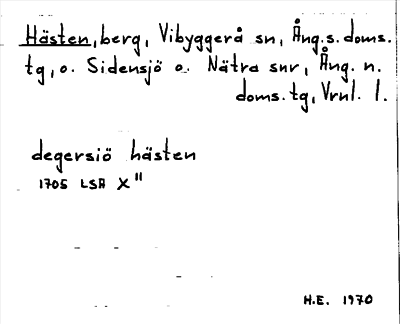 Hästen, berg, Vibyggerå sn, Ång. s. doms.
tg, o. Sidensjö o. Nätra snr, Ång. n.
doms. tg, Vrnl. l.
degersiö hästen
1705 LSA X"
H.E. 1970